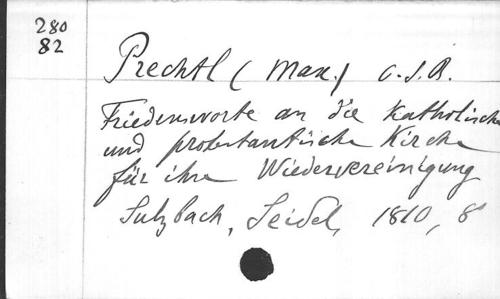 280
82
Prechtl (Max.)
Friedensworte an die katholische
und protestantische Kirche
für ihre Wiedervereinigung
Sulzbach, Seidel, 1810, 8°